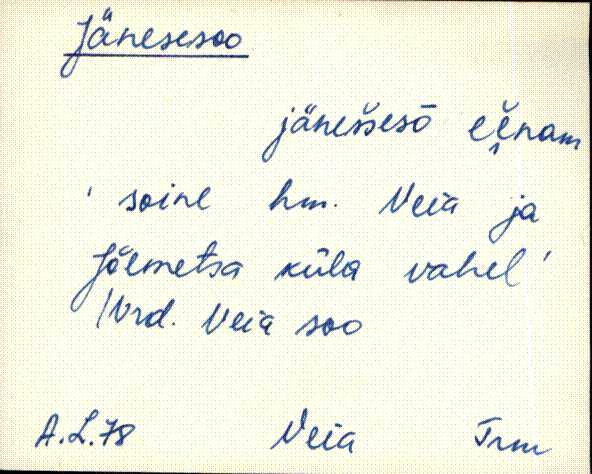 Jänesesoo
jänešsesō eĕnam
' soine hm. Veia ja
Jõemetsa küla vahel'
/Vrd. Veia soo
A.L.78 Veia Trm